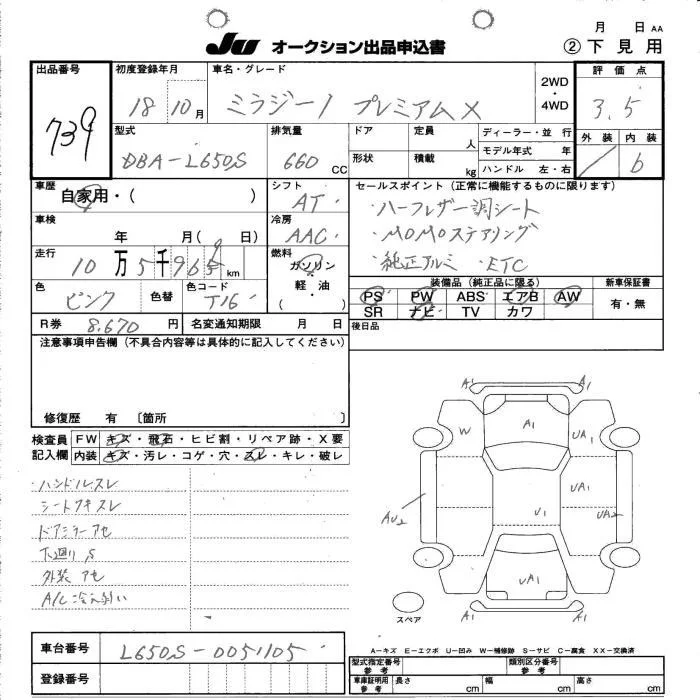 JU オークション出品申込書
月 日 AA
② 下見用
出品番号
739
初度登録年月
18 10月
車名・グレード
ミラジーノ プレミアムX
2WD
・
4WD
評価点
3.5
外装 内装
b
型式
DBA-L650S
排気量
660 CC
ドア
形状
定員 人
積載 kg
ディーラー・並行
モデル年式 年
ハンドル 左・右
車歴
自家用・( )
シフト
AT
車検
年 月( 日)
冷房
AAC
走行
10万5千965km
9
燃料
ガソリン
軽・油
( )
色
ピンク
色替
色コード
T16
R券 8,670 円
名変通知期限 月 日
セールスポイント(正常に機能するものに限ります)
・ハーフレザー調シート
・MOMOステアリング
・純正アルミ ・ETC
装備品(純正品に限る)
PS PW ABS エアB AW
SR ナビ TV カワ
新車保証書
有・無
後日品
注意事項申告欄(不具合内容等は具体的に記入してください)
修復歴 有 〔箇所 〕
検査員
記入欄
FW キズ・飛石・ヒビ割・リペア跡・X要
内装 キズ・汚レ・コゲ・穴・スレ・キレ・破レ
・ハンドルスレ
シートワキスレ
ドアミラーアセ
下廻りS
外装アセ
A/C冷え弱い
A1 A1
W A1 UA1
UA1
AU2 U1 UA2
UA1
A1 A1
スペア
A-キズ E-エクボ U-凹み W-補修跡 S-サビ C-腐食 XX-交換済
車台番号
L650S-0051105
登録番号
型式指定番号
参考
類別区分番号
参考
車庫証明用
参考
長さ cm
幅 cm
高さ cm